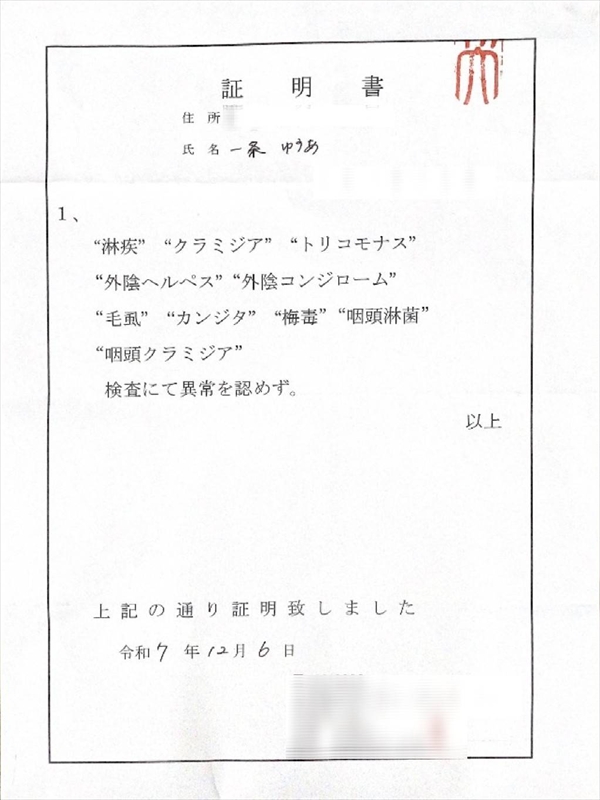 証明書
住所
氏名 一条 ゆうあ
1、
“淋疾” “クラミジア” “トリコモナス”
“外陰ヘルペス” “外陰コンジローム”
“毛虱” “カンジタ” “梅毒” “咽頭淋菌”
“咽頭クラミジア”
検査にて異常を認めず。
以上
上記の通り証明致しました
令和7年12月6日